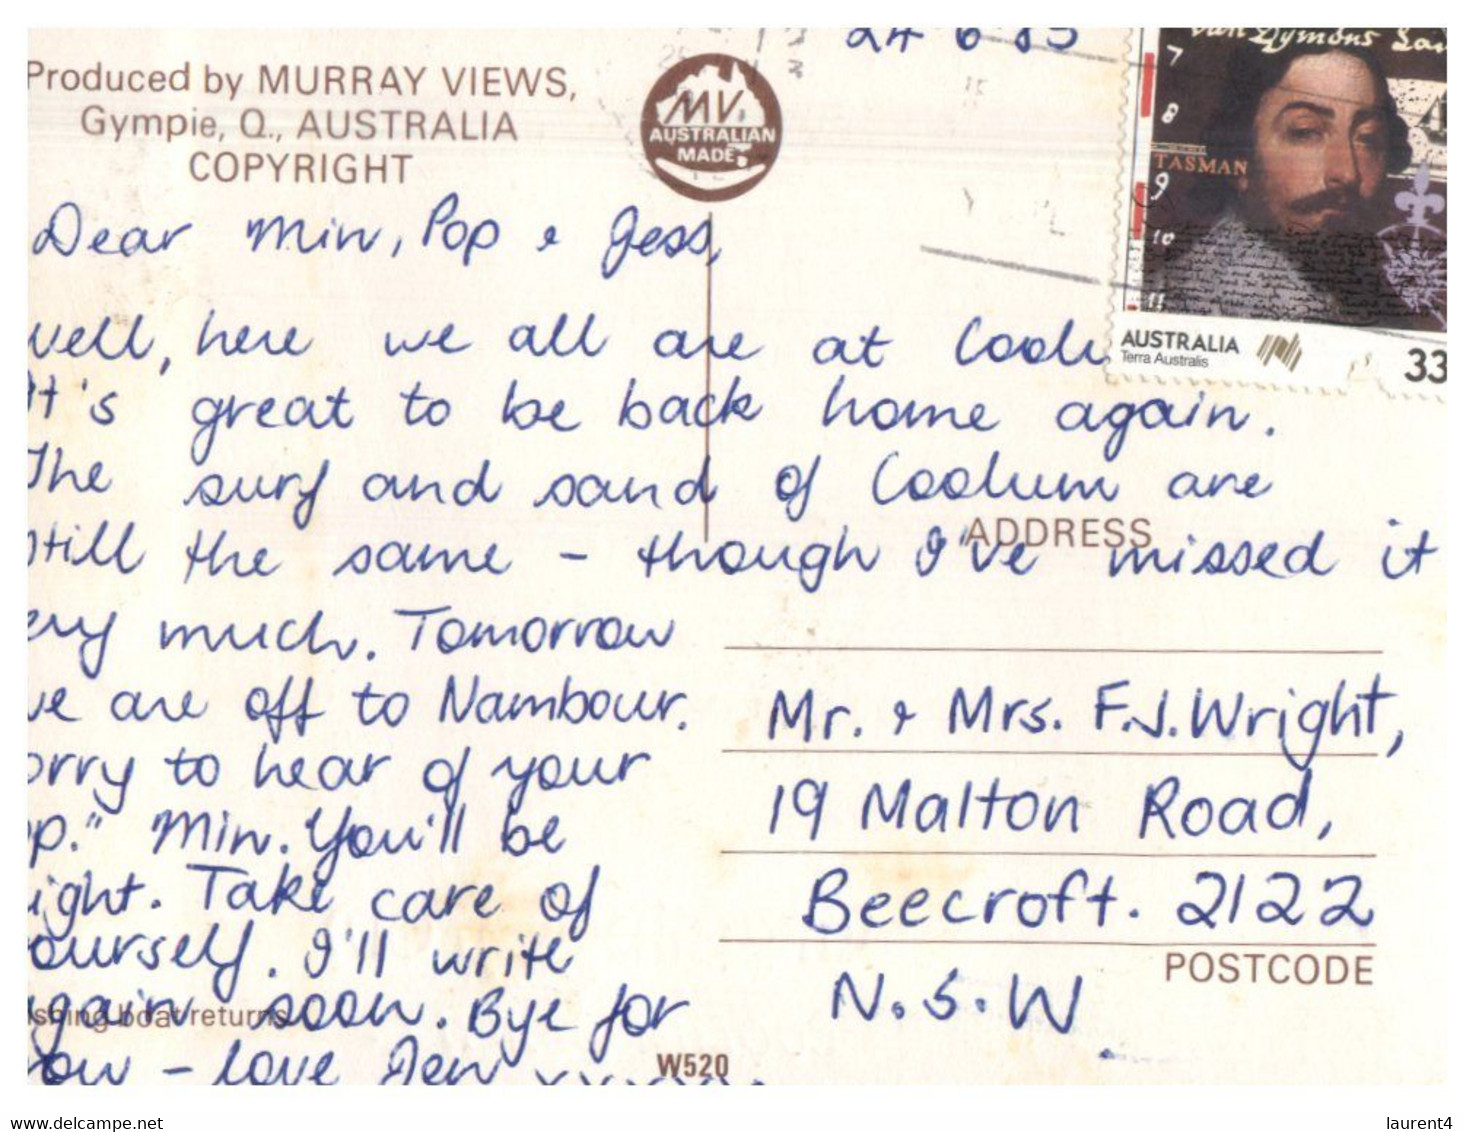 24 6 85
Produced by MURRAY VIEWS,
Gympie, Q., AUSTRALIA
COPYRIGHT
MV.
AUSTRALIAN
MADE
Van Dymons Lan
7
8
TASMAN
9
10
11
AUSTRALIA
Terra Australis
33
Dear Min, Pop & Jess,
well, here we all are at Coolu
It's great to be back home again.
The surf and sand of Coolum are
still the same - though I've missed it
ery much. Tomorrow
we are off to Nambour.
orry to hear of your
op." Min. You'll be
ight. Take care of
ourself. I'll write
again soon. Bye for
ow - love Jen xxxxx
ishing boat returns
W520
ADDRESS
Mr. & Mrs. F.J. Wright,
19 Malton Road,
Beecroft. 2122
POSTCODE
N.S.W
www.delcampe.net
laurent4